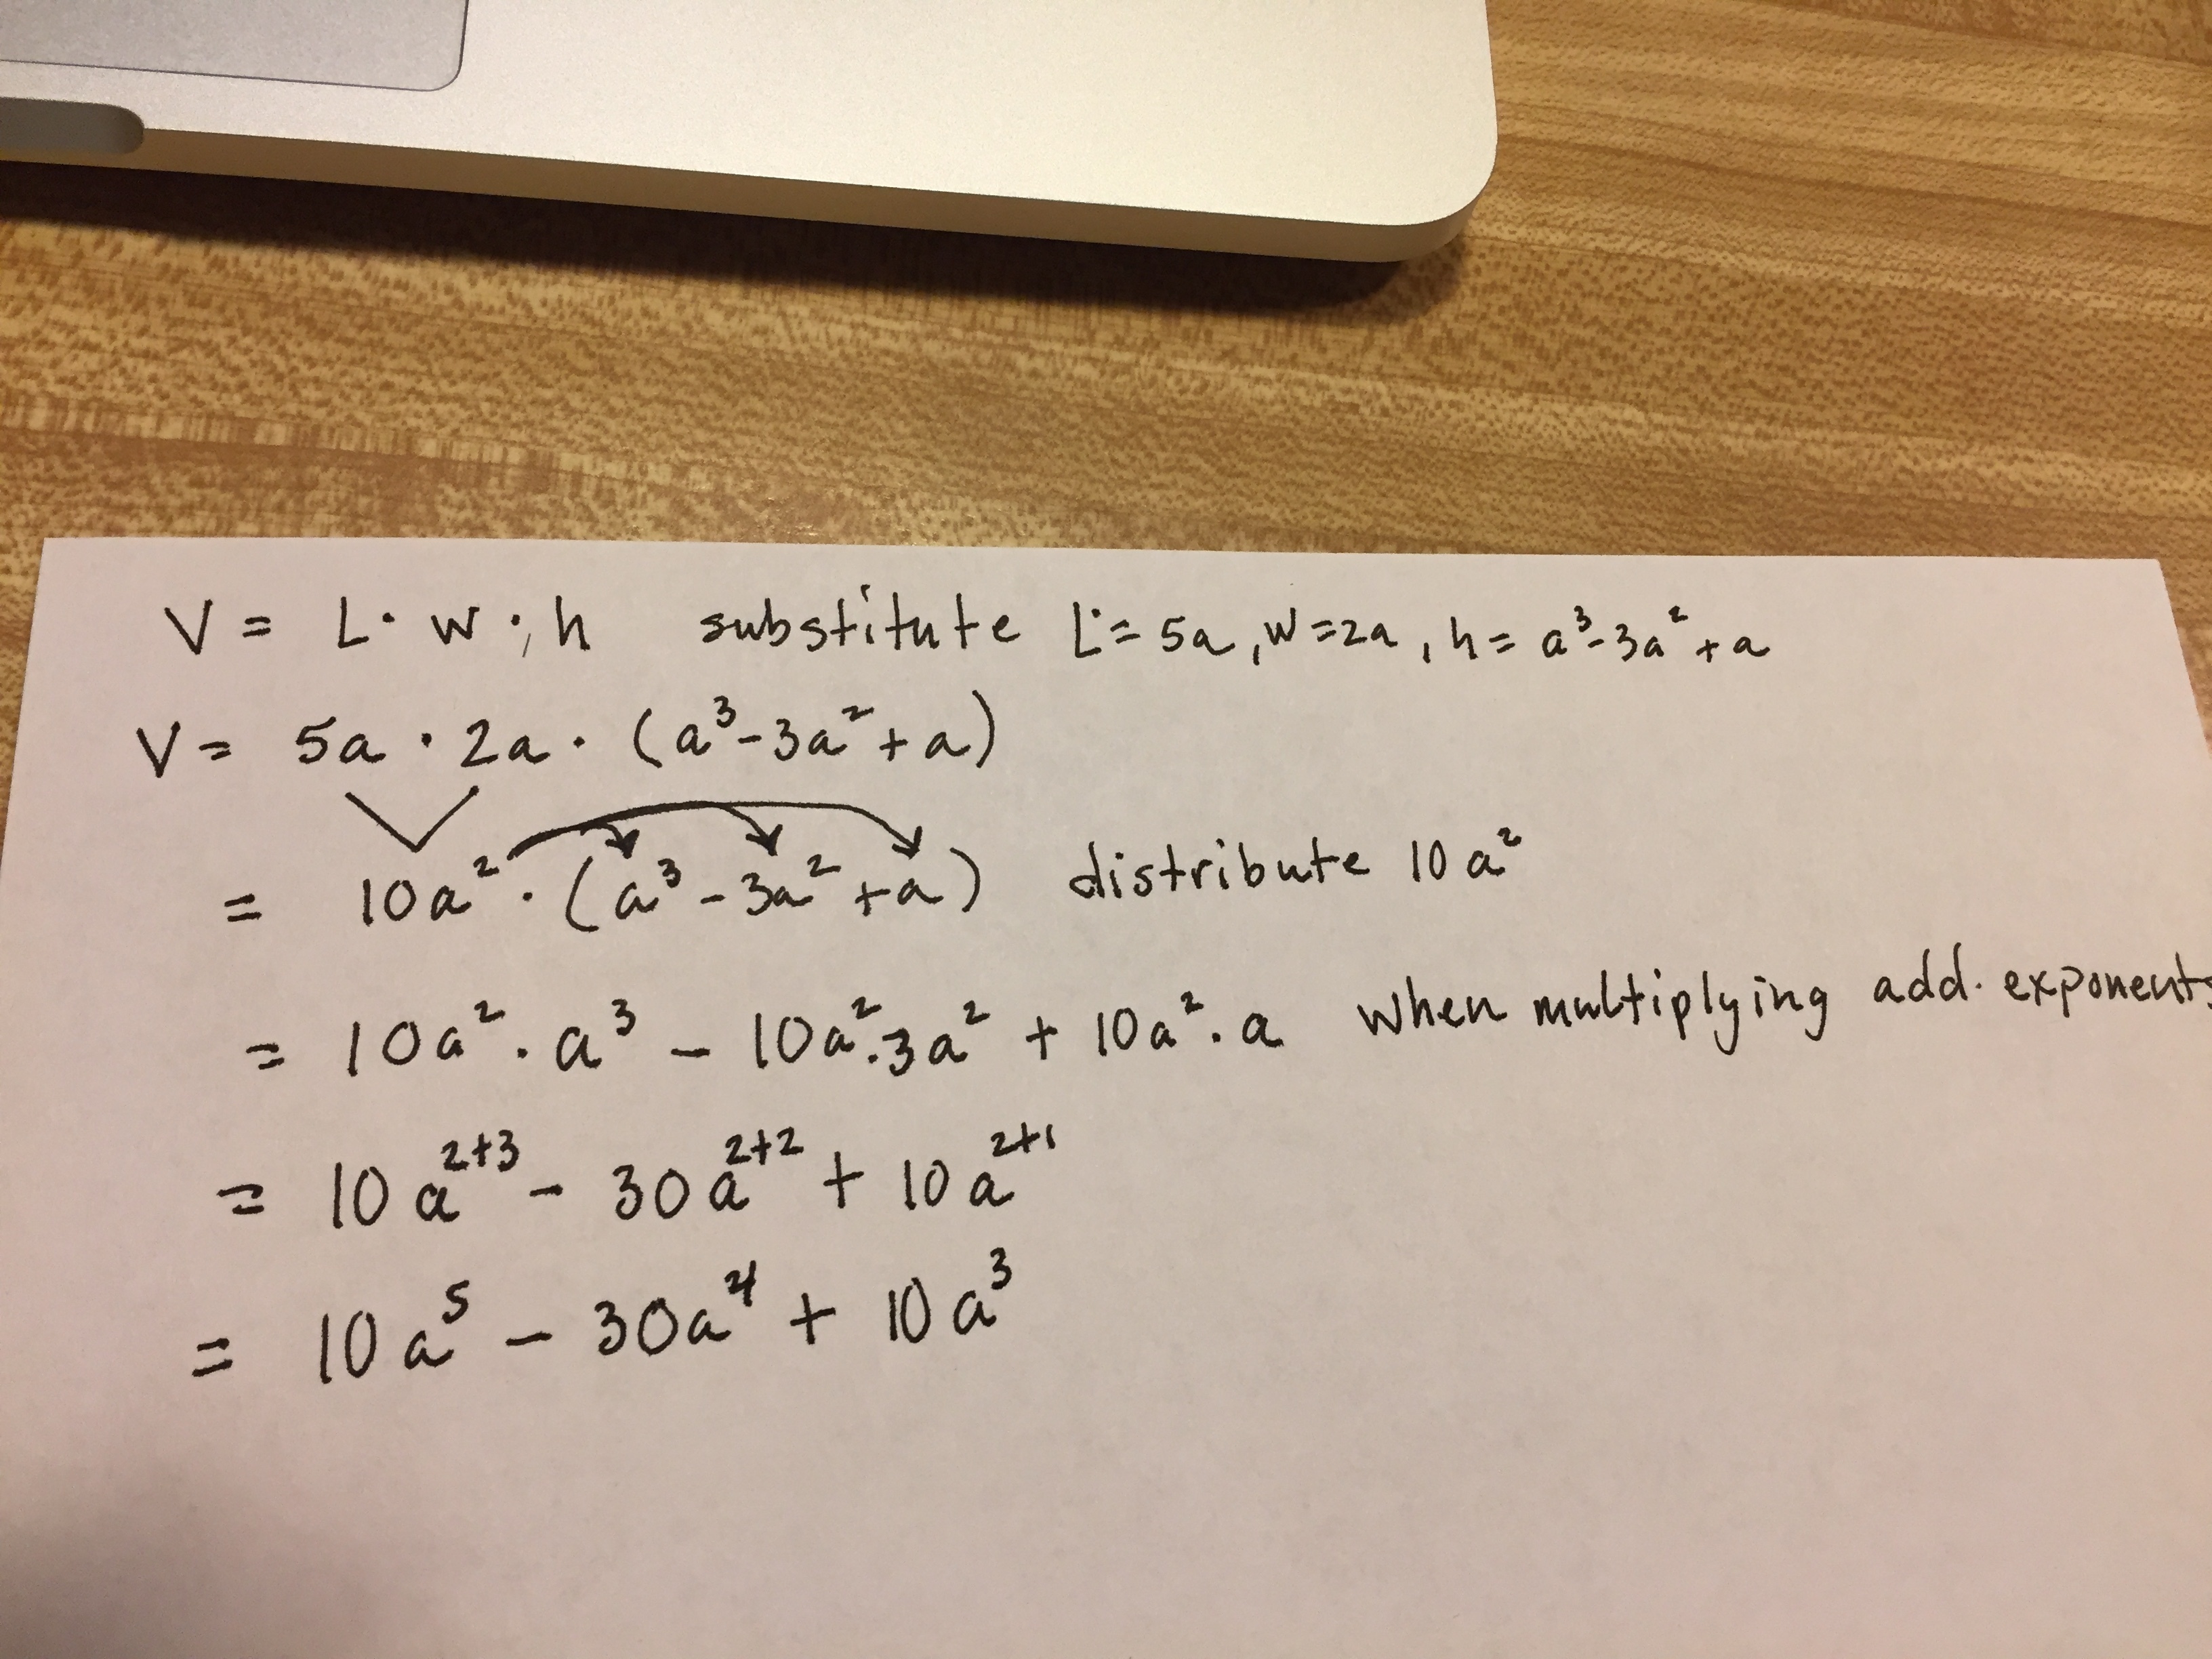 V = L · w · h substitute L = 5a, w = 2a, h = a³ - 3a² + a
V = 5a · 2a · (a³ - 3a² + a)
= 10a² · (a³ - 3a² + a) distribute 10a²
= 10a² · a³ - 10a² · 3a² + 10a² · a when multiplying add exponents
= 10a²⁺³ - 30a²⁺² + 10a²⁺¹
= 10a⁵ - 30a⁴ + 10a³